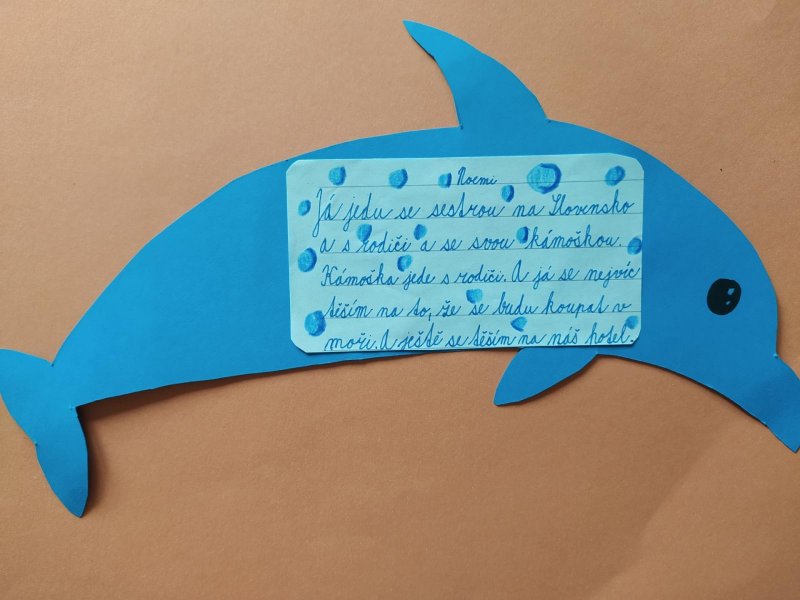 Noemi
Já jedu se sestrou na Slovensko
a s rodiči a se svou kámoškou.
Kámoška jede s rodiči. A já se nejvíc
těším na to, že se budu koupat v
moři. A ještě se těším na náš hotel.